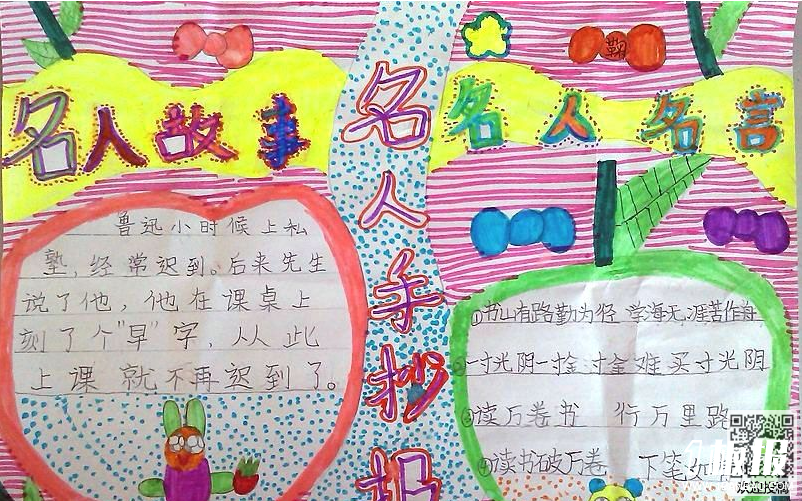 名人故事
鲁迅小时候上私
塾，经常迟到。后来先生
说了他，他在课桌上
刻了个"早"字，从此
上课就不再迟到了。
名人手抄报
名人名言
①书山有路勤为径 学海无涯苦作舟
②一寸光阴一寸金 寸金难买寸光阴
③读万卷书 行万里路
④读书破万卷 下笔如